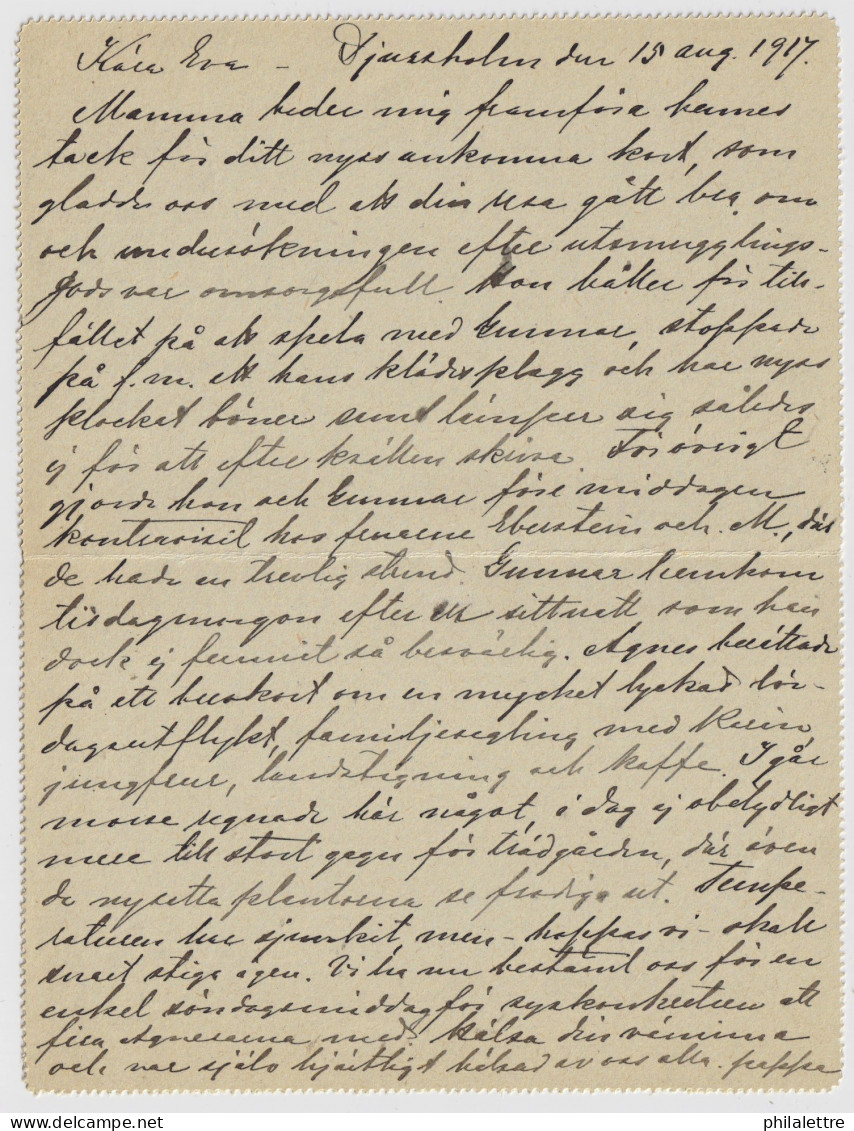 Kära Eva – Djursholm den 15 aug. 1917.
Mamma beder mig framföra hennes
tack för ditt nyss ankomna kort, som
gladde oss med att din resa gått bra, om
och undersökningen efter utsmugglings-
gods var omsorgsfull. Hon håller för till-
fället på att spela med Gunnar, stoppade
på f.m. ett hans klädesplagg och har nyss
plockat bönor samt lämpar sig således
ej för att efter kvällen skriva. För övrigt
gjorde hon och Gunnar före middagen
kontravisit hos fruarna Eberstein och M., där
de hade en trevlig stund. Gunnar hemkom
tisdagmorgon efter en sittnatt som han
dock ej funnit så besvärlig. Agnes berättade
på ett brevkort om en mycket lyckad lör-
dagsutflykt, familjesegling med
jungfrur, landstigning och kaffe. I går
morse regnade här något, i dag ej obetydligt
mera till stort gagn för trädgården, där även
de nysatta plantorna se frodiga ut. Tempe-
raturen har sjunkit, men – hoppas vi – skall
snart stiga igen. Vi ha nu bestämt oss för en
enkel söndagsmiddag för syskonkretsen att
fira Agneserna med. Hälsa din väninna
och var själv hjärtligt hälsad av oss alla. pappa
philalettre